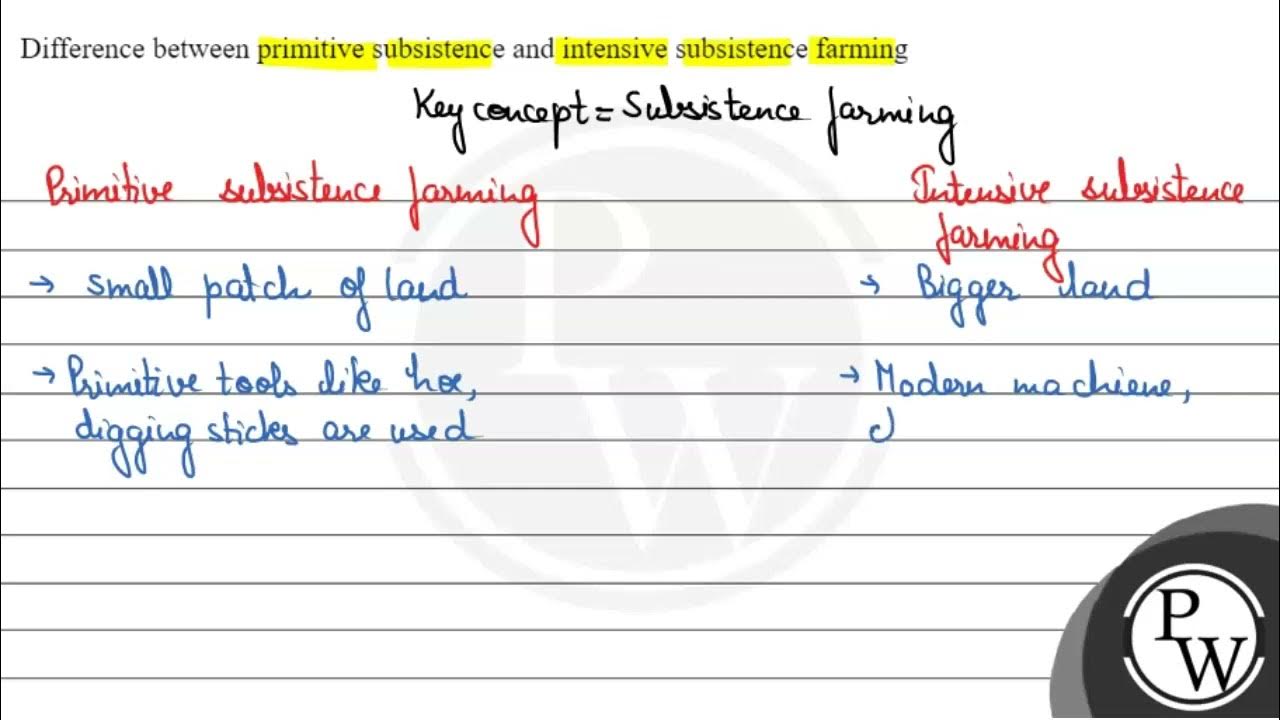 Difference between primitive subsistence and intensive subsistence farming
Key concept = Subsistence farming
Primitive subsistence farming
Intensive subsistence
farming
→ small patch of land
→ Bigger land
→ Primitive tools like hoe,
digging sticks are used
→ Modern machiene,
P
W
P
W